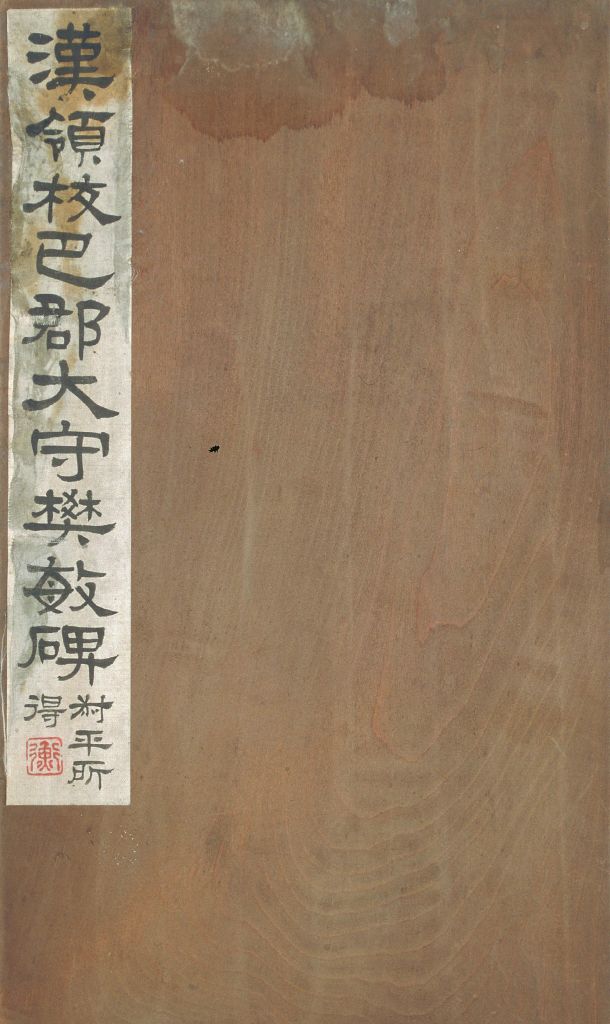 漢領校巴郡大守樊敏碑
叔平所
得
衡